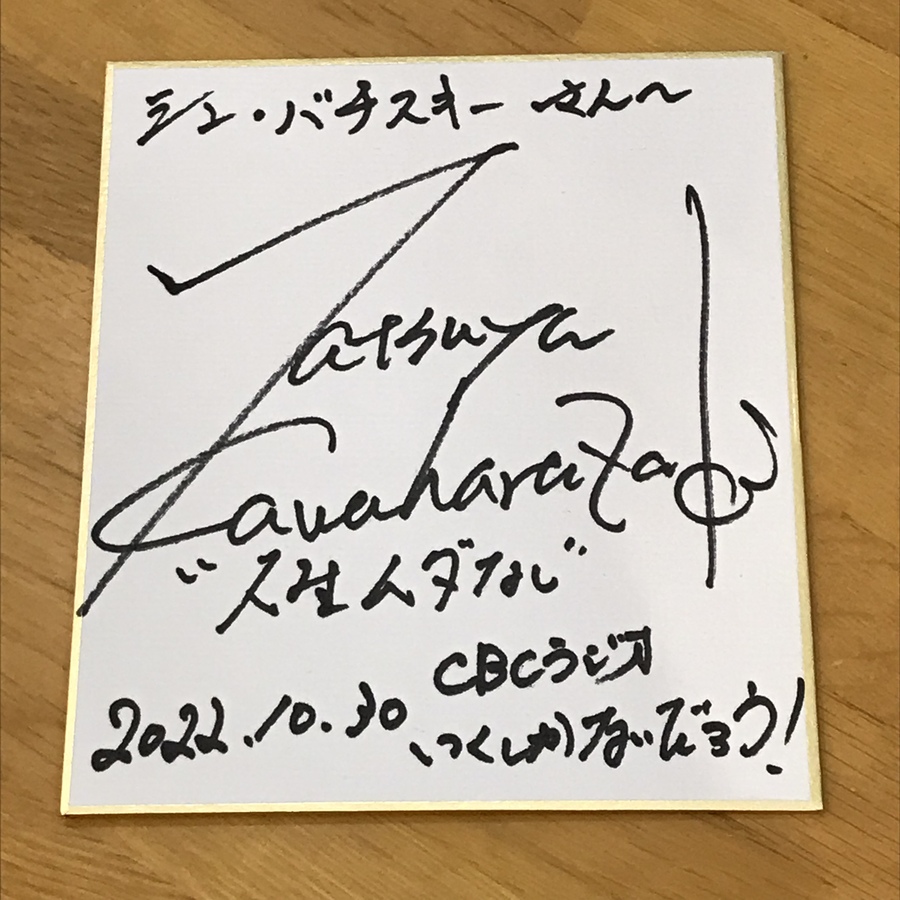 シュ・バチスキー さんへ
Tatsuya
Kawaharazaki
"人生ムダなし"
CBCラジオ
2022.10.30 いくしかないだろう!